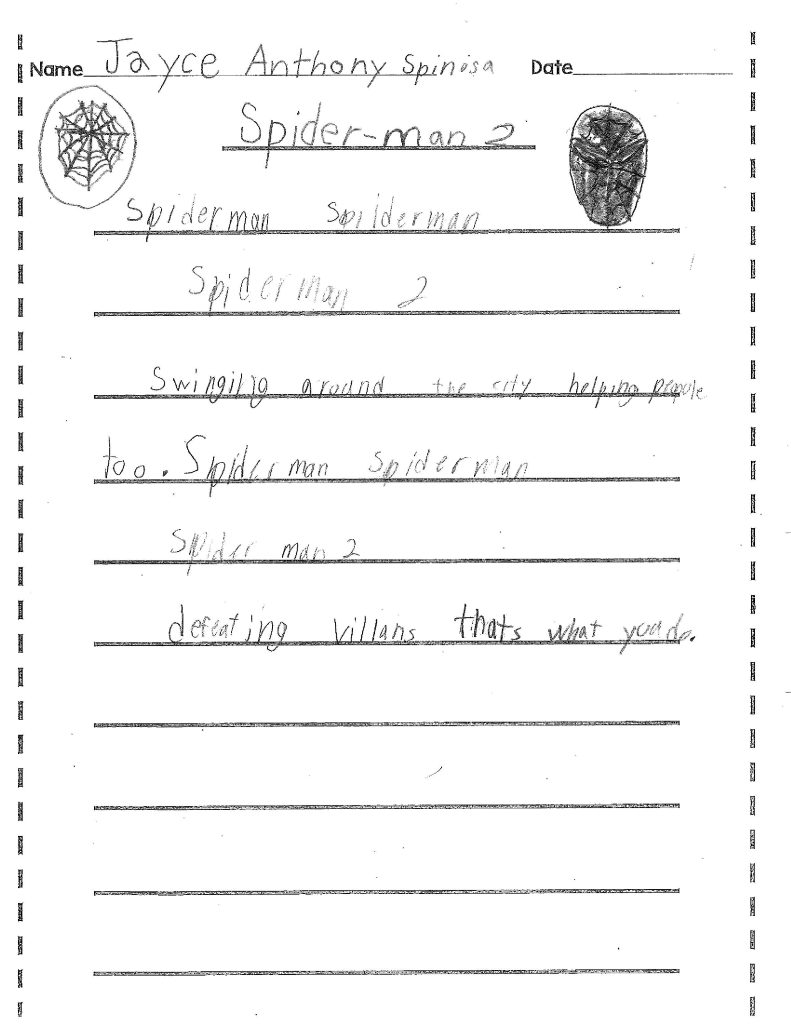 Name Jayce Anthony Spinosa Date
Spider-man 2
spiderman spilderman
Spiderman 2
Swinging around the city helping peaple
too. Spider man Spiderman
Spider man 2
defeating villans thats what you do.